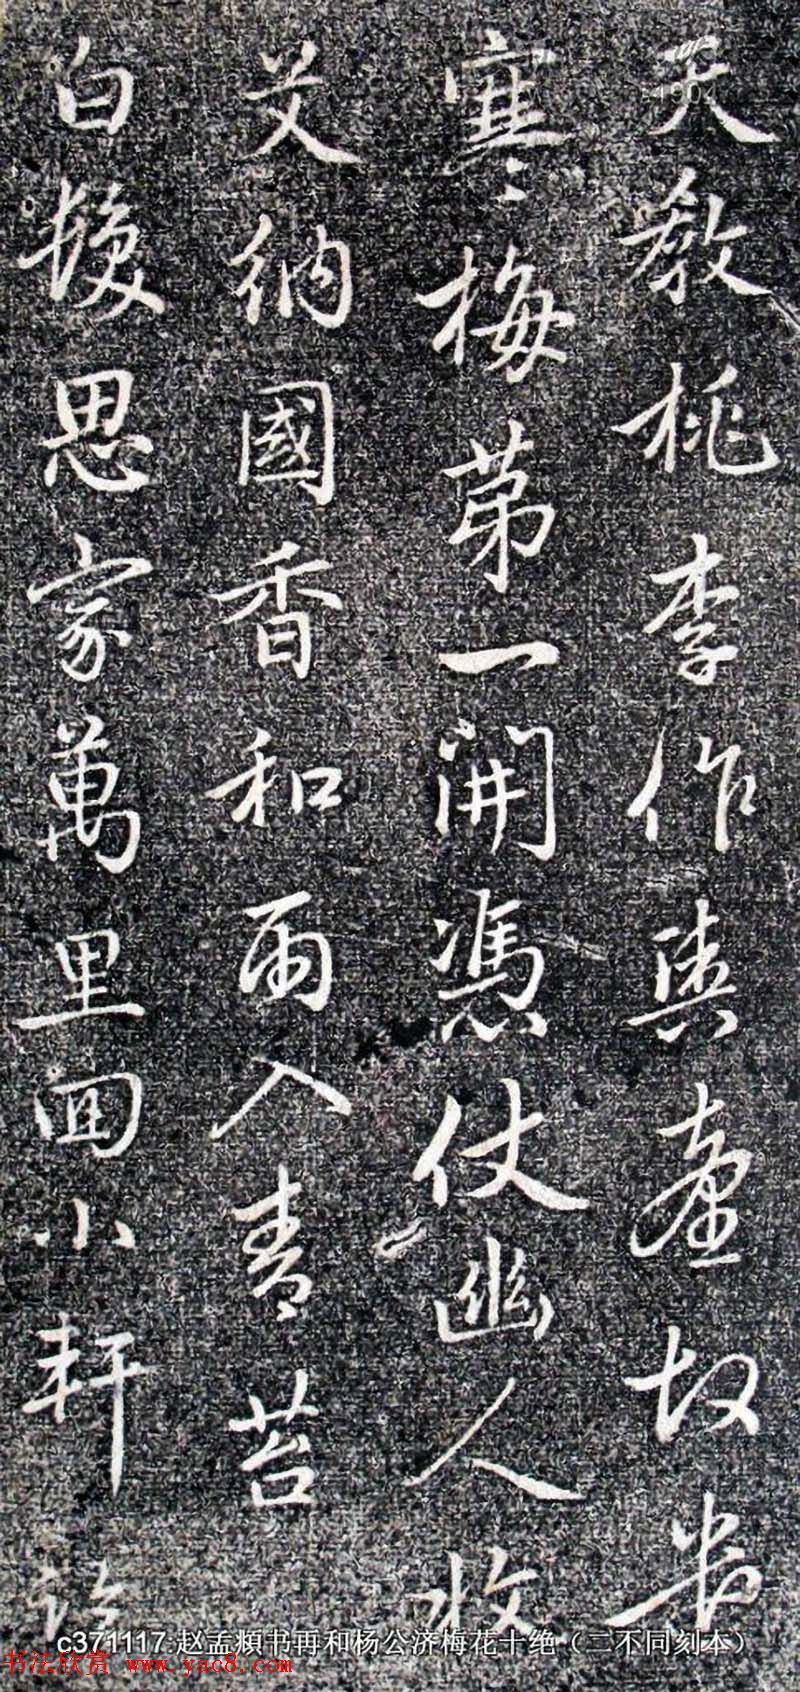 天教桃李作輿臺故
寒梅第一開憑仗幽人收
艾納國香和雨入青苔
白髮思家萬里回小軒
c371117:赵孟頫书再和杨公济梅花十绝（二不同刻本）
书法欣赏 www.yac8.com